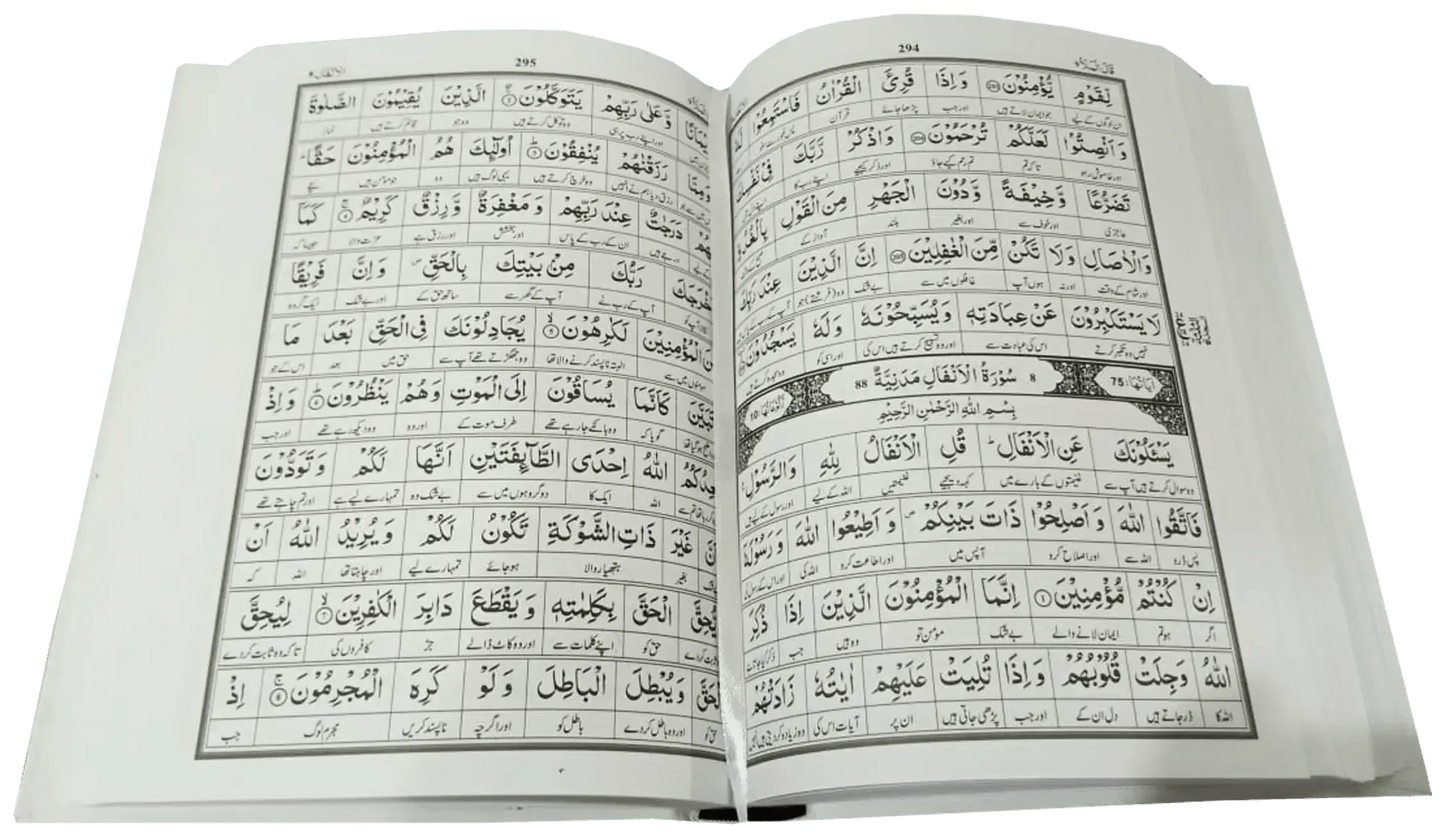 294
قَالَ الْمَلَاُ ۹
لِقَوْمٍ یُّؤْمِنُوْنَ 203 وَ اِذَا قُرِئَ الْقُرْاٰنُ فَاسْتَمِعُوْا
ان لوگوں کے لیے جو ایمان لاتے ہیں اور جب پڑھا جائے قرآن
وَ اَنْصِتُوْا لَعَلَّكُمْ تُرْحَمُوْنَ 204 وَاذْكُرْ رَّبَّكَ فِیْ نَفْسِكَ
اور خاموش رہو تاکہ تم تم رحم کیے جاؤ اور ذکر کیجیے اپنے رب کا
تَضَرُّعًا وَّ خِیْفَةً وَّ دُوْنَ الْجَهْرِ مِنَ الْقَوْلِ بِالْغُدُوِّ
عاجزی اور خوف سے اور بغیر بلند آواز کے
وَ الْاٰصَالِ وَ لَا تَكُنْ مِّنَ الْغٰفِلِیْنَ 205 اِنَّ الَّذِیْنَ عِنْدَ رَبِّكَ
اور شام کے وقت اور نہ ہوں آپ غافلوں میں سے بے شک وہ (فرشتے) جو آپ کے رب کے
لَا یَسْتَكْبِرُوْنَ عَنْ عِبَادَتِهٖ وَ یُسَبِّحُوْنَهٗ وَ لَهٗ یَسْجُدُوْنَ
نہیں وہ تکبر کرتے اس کی عبادت سے اور وہ تسبیح کرتے ہیں اس کی اور اسی کو وہ سجدہ کرتے ہیں
اٰیَاتُهَا: 75 8 سُوْرَةُ الْاَنْفَالِ مَدَنِیَّةٌ 88 رُكُوْعَاتُهَا: 10
بِسْمِ اللّٰهِ الرَّحْمٰنِ الرَّحِیْمِ
یَسْـَٔلُوْنَكَ عَنِ الْاَنْفَالِ ؕ قُلِ الْاَنْفَالُ لِلّٰهِ وَ الرَّسُوْلِ
وہ سوال کرتے ہیں آپ سے غنیمتوں کے بارے میں کہہ دیجیے غنیمتیں اللہ کے لیے اور رسول کے لیے ہیں
فَاتَّقُوا اللّٰهَ وَ اَصْلِحُوْا ذَاتَ بَیْنِكُمْ ۪ وَ اَطِیْعُوا اللّٰهَ وَ رَسُوْلَهٗ
پس ڈرو اللہ سے اور اصلاح کرو آپس میں اور اطاعت کرو اللہ کی اور اس کے رسول کی
اِنْ كُنْتُمْ مُّؤْمِنِیْنَ 1 اِنَّمَا الْمُؤْمِنُوْنَ الَّذِیْنَ اِذَا ذُكِرَ
اگر ہو تم ایمان لانے والے بے شک مومن تو وہ ہیں جب ذکر کیا جاتا ہے
اللّٰهُ وَجِلَتْ قُلُوْبُهُمْ وَ اِذَا تُلِیَتْ عَلَیْهِمْ اٰیٰتُهٗ زَادَتْهُمْ
اللہ کا ڈر جاتے ہیں دل ان کے اور جب پڑھی جاتی ہیں ان پر آیات اس کی وہ زیادہ کر دیتی ہیں
295
الْاَنْفَالِ ۸
وَّ عَلٰی رَبِّهِمْ یَتَوَكَّلُوْنَ 2 الَّذِیْنَ یُقِیْمُوْنَ الصَّلٰوةَ
اور اپنے رب پر ہی وہ توکل کرتے ہیں وہ جو قائم کرتے ہیں نماز
وَ مِمَّا رَزَقْنٰهُمْ یُنْفِقُوْنَ 3 اُولٰٓىِٕكَ هُمُ الْمُؤْمِنُوْنَ حَقًّا ؕ
رزق دیا ہم نے انہیں وہ خرچ کرتے ہیں یہی لوگ ہیں وہ جو مومن ہیں سچے
دَرَجٰتٌ عِنْدَ رَبِّهِمْ وَ مَغْفِرَةٌ وَّ رِزْقٌ كَرِیْمٌ 4 كَمَاۤ
درجے ہیں ان کے رب کے پاس اور بخشش اور رزق ہے عزت والا جیسا کہ
رَبُّكَ مِنْۢ بَیْتِكَ بِالْحَقِّ ۪ وَ اِنَّ فَرِیْقًا
آپ کے رب نے آپ کے گھر سے ساتھ حق کے اور بے شک ایک گروہ
الْمُؤْمِنِیْنَ لَكٰرِهُوْنَ 5 یُجَادِلُوْنَكَ فِی الْحَقِّ بَعْدَ مَا
مومنوں میں سے البتہ ناپسند کرنے والا تھا وہ جھگڑتے تھے آپ سے حق میں بعد اس کے جو
كَاَنَّمَا یُسَاقُوْنَ اِلَی الْمَوْتِ وَ هُمْ یَنْظُرُوْنَ 6 وَ اِذْ
گویا کہ وہ ہانکے جا رہے تھے طرف موت کے اور وہ وہ دیکھ رہے تھے اور جب
اللّٰهُ اِحْدَی الطَّآىِٕفَتَیْنِ اَنَّهَا لَكُمْ وَ تَوَدُّوْنَ
اللہ ایک کا دو گروہوں میں سے بے شک وہ تمہارے لیے ہے اور تم چاہتے تھے
غَیْرَ ذَاتِ الشَّوْكَةِ تَكُوْنُ لَكُمْ وَ یُرِیْدُ اللّٰهُ اَنْ
بغیر ہتھیار والا ہو جائے تمہارے لیے اور چاہتا تھا اللہ کہ
یُّحِقَّ الْحَقَّ بِكَلِمٰتِهٖ وَ یَقْطَعَ دَابِرَ الْكٰفِرِیْنَ 7 لِیُحِقَّ
حق کو اپنے کلمات سے اور وہ کاٹ ڈالے جڑ کافروں کی تاکہ وہ ثابت کر دے
الْحَقَّ وَ یُبْطِلَ الْبَاطِلَ وَ لَوْ كَرِهَ الْمُجْرِمُوْنَ 8 اِذْ
حق کو اور وہ باطل کر دے باطل کو اور اگرچہ ناپسند کریں مجرم لوگ جب